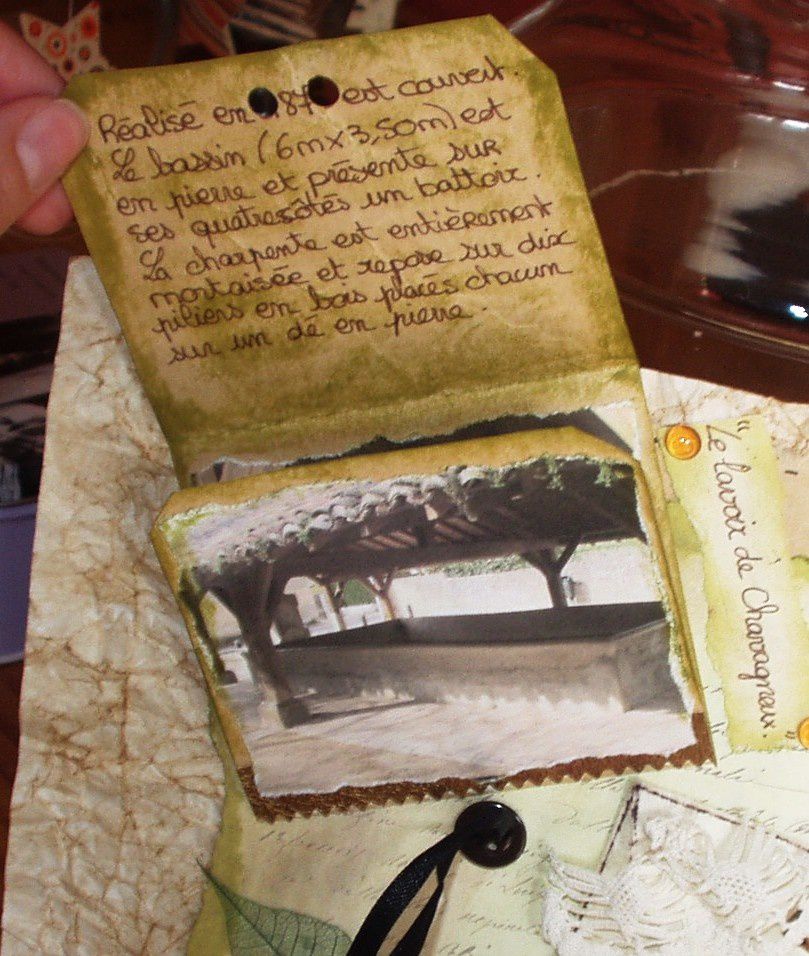 Réalisé en 187 est couvert.
Le bassin (6m x 3,50m) est
en pierre et présente sur
ses quatres côtés un battoir.
La charpente est entièrement
mortaisée et repose sur dix
piliers en bois placés chacun
sur un dé en pierre.
"Le lavoir de Chavagneux."